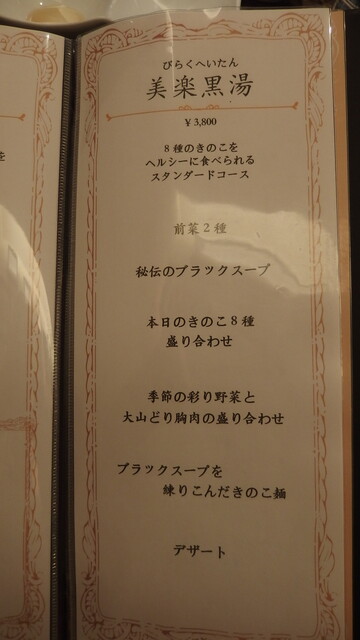 びらくへいたん
美楽黒湯
¥3,800
8種のきのこを
ヘルシーに食べられる
スタンダードコース
前菜2種
秘伝のブラックスープ
本日のきのこ8種
盛り合わせ
季節の彩り野菜と
大山どり胸肉の盛り合わせ
ブラックスープを
練りこんだきのこ麺
デザート
を